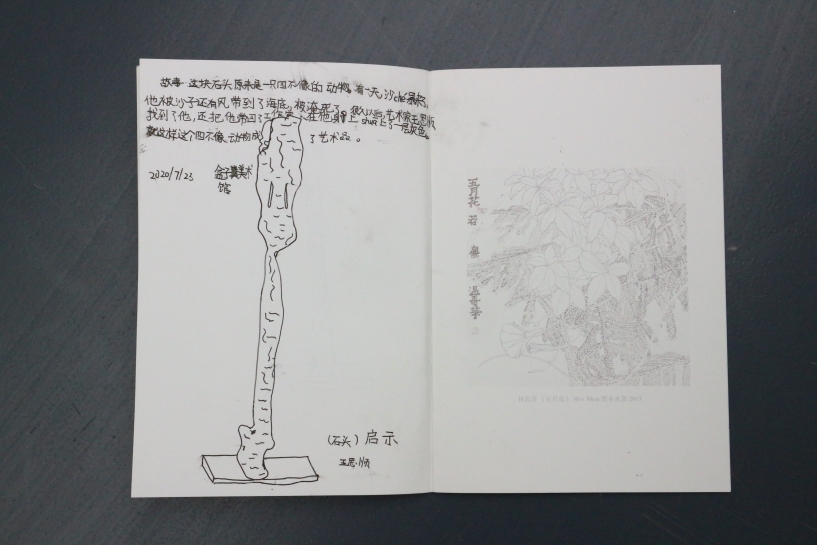 故事: 这块石头原来是一只四不像的动物。有一天,沙chén暴把
他被沙子还有风带到了海底,被淹死了。很久以后,艺术家王思顺
找到了他,还把他带回了工作室,在他身上shuā上了一层灰色。
就这样这个四不像动物成 了艺术品。
2020/7/23 盒子美术
馆
(石头) 启示
王思顺
五月花
若
温哥华